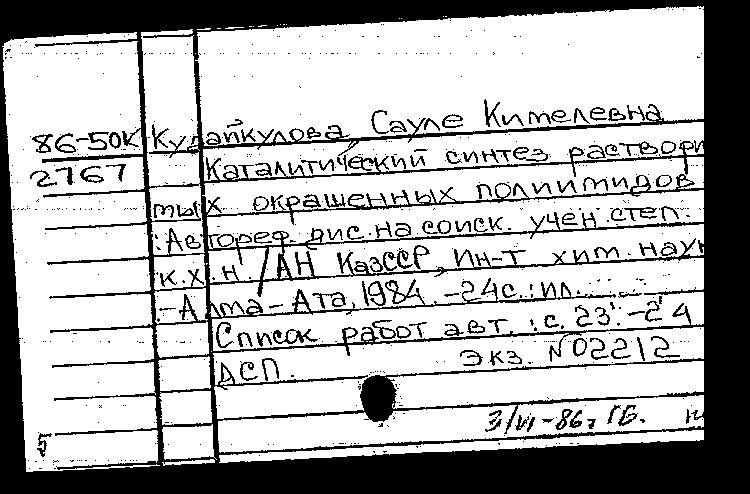 86-50к Кудайкулова, Сауле Кимелевна
2767 Каталитический синтез раствори
мых окрашенных полиимидов
: Автореф. дис. на соиск. учен. степ.
к.х.н. /АН КазССР, Ин-т хим. наук
-Алма-Ата, 1984. -24с.: ил.
Список работ авт.: с. 23 -24
ДСП. Экз. №02212
3/VI-86г
5